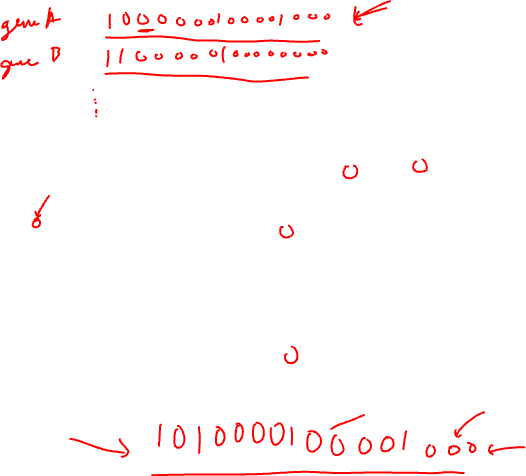 gene A 1000000100001000
gene B 1100000100000000
0 0
0
0
0
1010000100001000